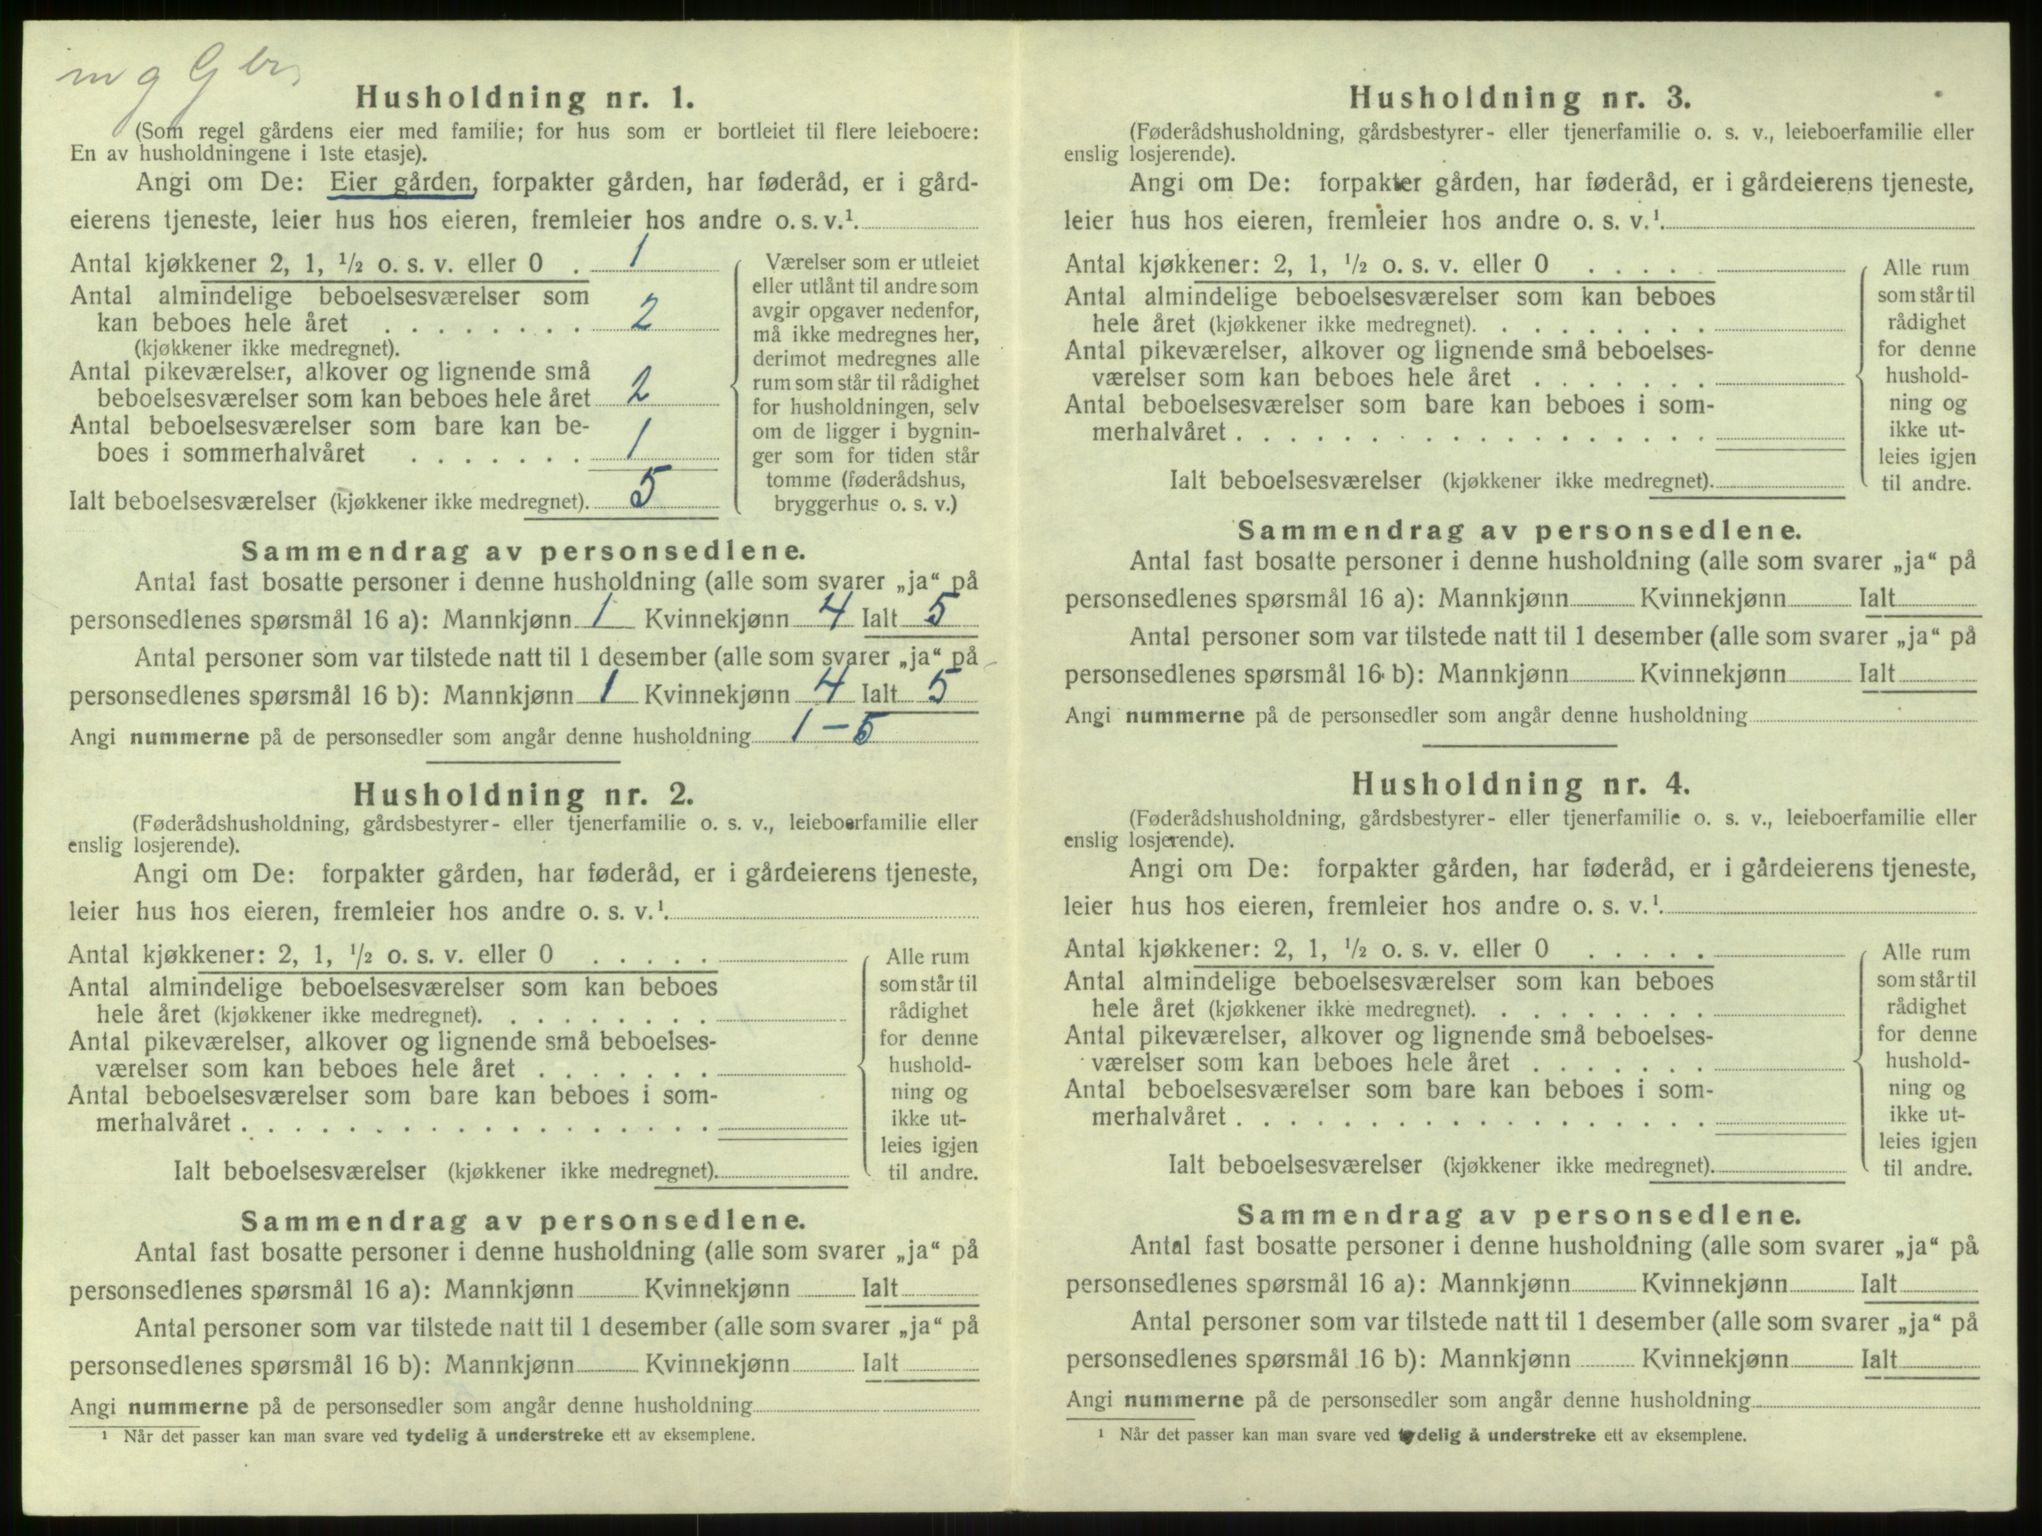 m g G br.
Husholdning nr. 1.
(Som regel gårdens eier med familie; for hus som er bortleiet til flere leieboere:
En av husholdningene i 1ste etasje).
Angi om De: Eier gården, forpakter gården, har føderåd, er i gård-
eierens tjeneste, leier hus hos eieren, fremleier hos andre o. s. v.¹
Antal kjøkkener 2, 1, ½ o. s. v. eller 0 . 1
Antal almindelige beboelsesværelser som
kan beboes hele året . . . . . . . . 2
(kjøkkener ikke medregnet).
Antal pikeværelser, alkover og lignende små
beboelsesværelser som kan beboes hele året 2
Antal beboelsesværelser som bare kan be-
boes i sommerhalvåret . . . . . . . 1
Ialt beboelsesværelser (kjøkkener ikke medregnet). 5
Værelser som er utleiet
eller utlånt til andre som
avgir opgaver nedenfor,
må ikke medregnes her,
derimot medregnes alle
rum som står til rådighet
for husholdningen, selv
om de ligger i bygnin-
ger som for tiden står
tomme (føderådshus,
bryggerhus o. s. v.)
Sammendrag av personsedlene.
Antal fast bosatte personer i denne husholdning (alle som svarer „ja“ på
personsedlenes spørsmål 16 a): Mannkjønn 1 Kvinnekjønn 4 Ialt 5
Antal personer som var tilstede natt til 1 desember (alle som svarer „ja“ på
personsedlenes spørsmål 16 b): Mannkjønn 1 Kvinnekjønn 4 Ialt 5
Angi nummerne på de personsedler som angår denne husholdning 1 – 5
Husholdning nr. 2.
(Føderådshusholdning, gårdsbestyrer- eller tjenerfamilie o. s. v., leieboerfamilie eller
enslig losjerende).
Angi om De: forpakter gården, har føderåd, er i gårdeierens tjeneste,
leier hus hos eieren, fremleier hos andre o. s. v.¹
Antal kjøkkener: 2, 1, ½ o. s. v. eller 0 . . . . .
Antal almindelige beboelsesværelser som kan beboes
hele året (kjøkkener ikke medregnet). . . . . . . . .
Antal pikeværelser, alkover og lignende små beboelses-
værelser som kan beboes hele året . . . . . . .
Antal beboelsesværelser som bare kan beboes i som-
merhalvåret . . . . . . . . . . . . . . . . . .
Ialt beboelsesværelser (kjøkkener ikke medregnet).
Alle rum
som står til
rådighet
for denne
hushold-
ning og
ikke ut-
leies igjen
til andre.
Sammendrag av personsedlene.
Antal fast bosatte personer i denne husholdning (alle som svarer „ja“ på
personsedlenes spørsmål 16 a): Mannkjønn Kvinnekjønn Ialt
Antal personer som var tilstede natt til 1 desember (alle som svarer „ja“ på
personsedlenes spørsmål 16 b): Mannkjønn Kvinnekjønn Ialt
Angi nummerne på de personsedler som angår denne husholdning
¹ Når det passer kan man svare ved tydelig å understreke ett av eksemplene.
Husholdning nr. 3.
(Føderådshusholdning, gårdsbestyrer- eller tjenerfamilie o. s. v., leieboerfamilie eller
enslig losjerende).
Angi om De: forpakter gården, har føderåd, er i gårdeierens tjeneste,
leier hus hos eieren, fremleier hos andre o. s. v.¹
Antal kjøkkener: 2, 1, ½ o. s. v. eller 0 . . . .
Antal almindelige beboelsesværelser som kan beboes
hele året (kjøkkener ikke medregnet). . . . . . . . .
Antal pikeværelser, alkover og lignende små beboelses-
værelser som kan beboes hele året . . . . . . .
Antal beboelsesværelser som bare kan beboes i som-
merhalvåret . . . . . . . . . . . . . . . . . .
Ialt beboelsesværelser (kjøkkener ikke medregnet).
Alle rum
som står til
rådighet
for denne
hushold-
ning og
ikke ut-
leies igjen
til andre.
Sammendrag av personsedlene.
Antal fast bosatte personer i denne husholdning (alle som svarer „ja“ på
personsedlenes spørsmål 16 a): Mannkjønn Kvinnekjønn Ialt
Antal personer som var tilstede natt til 1 desember (alle som svarer „ja“ på
personsedlenes spørsmål 16 b): Mannkjønn Kvinnekjønn Ialt
Angi nummerne på de personsedler som angår denne husholdning
Husholdning nr. 4.
(Føderådshusholdning, gårdsbestyrer- eller tjenerfamilie o. s. v., leieboerfamilie eller
enslig losjerende).
Angi om De: forpakter gården, har føderåd, er i gårdeierens tjeneste,
leier hus hos eieren, fremleier hos andre o. s. v.¹
Antal kjøkkener: 2, 1, ½ o. s. v. eller 0 . . . . .
Antal almindelige beboelsesværelser som kan beboes
hele året (kjøkkener ikke medregnet). . . . . . . . .
Antal pikeværelser, alkover og lignende små beboelses-
værelser som kan beboes hele året . . . . . . .
Antal beboelsesværelser som bare kan beboes i som-
merhalvåret . . . . . . . . . . . . . . . . . .
Ialt beboelsesværelser (kjøkkener ikke medregnet).
Alle rum
som står til
rådighet
for denne
hushold-
ning og
ikke ut-
leies igjen
til andre.
Sammendrag av personsedlene.
Antal fast bosatte personer i denne husholdning (alle som svarer „ja“ på
personsedlenes spørsmål 16 a): Mannkjønn Kvinnekjønn Ialt
Antal personer som var tilstede natt til 1 desember (alle som svarer „ja“ på
personsedlenes spørsmål 16 b): Mannkjønn Kvinnekjønn Ialt
Angi nummerne på de personsedler som angår denne husholdning
¹ Når det passer kan man svare ved tydelig å understreke ett av eksemplene.